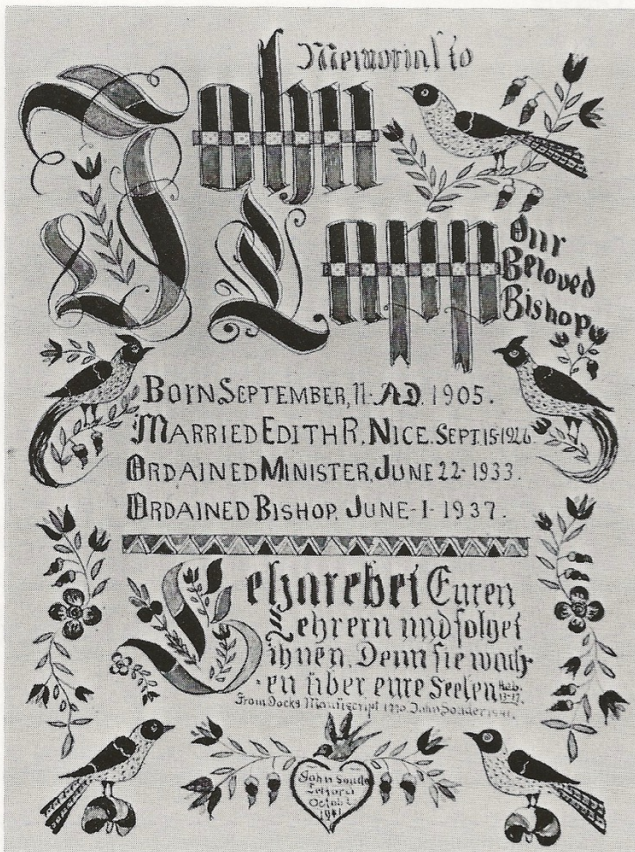 Memorial to
John
E Lapp
Our
Beloved
Bishop
BORN SEPTEMBER, 11. AD. 1905.
MARRIED EDITH R. NICE. SEPT. 15-1926.
ORDAINED MINISTER, JUNE 22-1933.
ORDAINED BISHOP, JUNE-1-1937.
Gehorchet Euren
Lehrern und folget
ihnen. Denn sie wach-
en über eure Seelen Heb.
13-17.
From Docks Manuscript John Souder 1941.
John Souder
October
1941